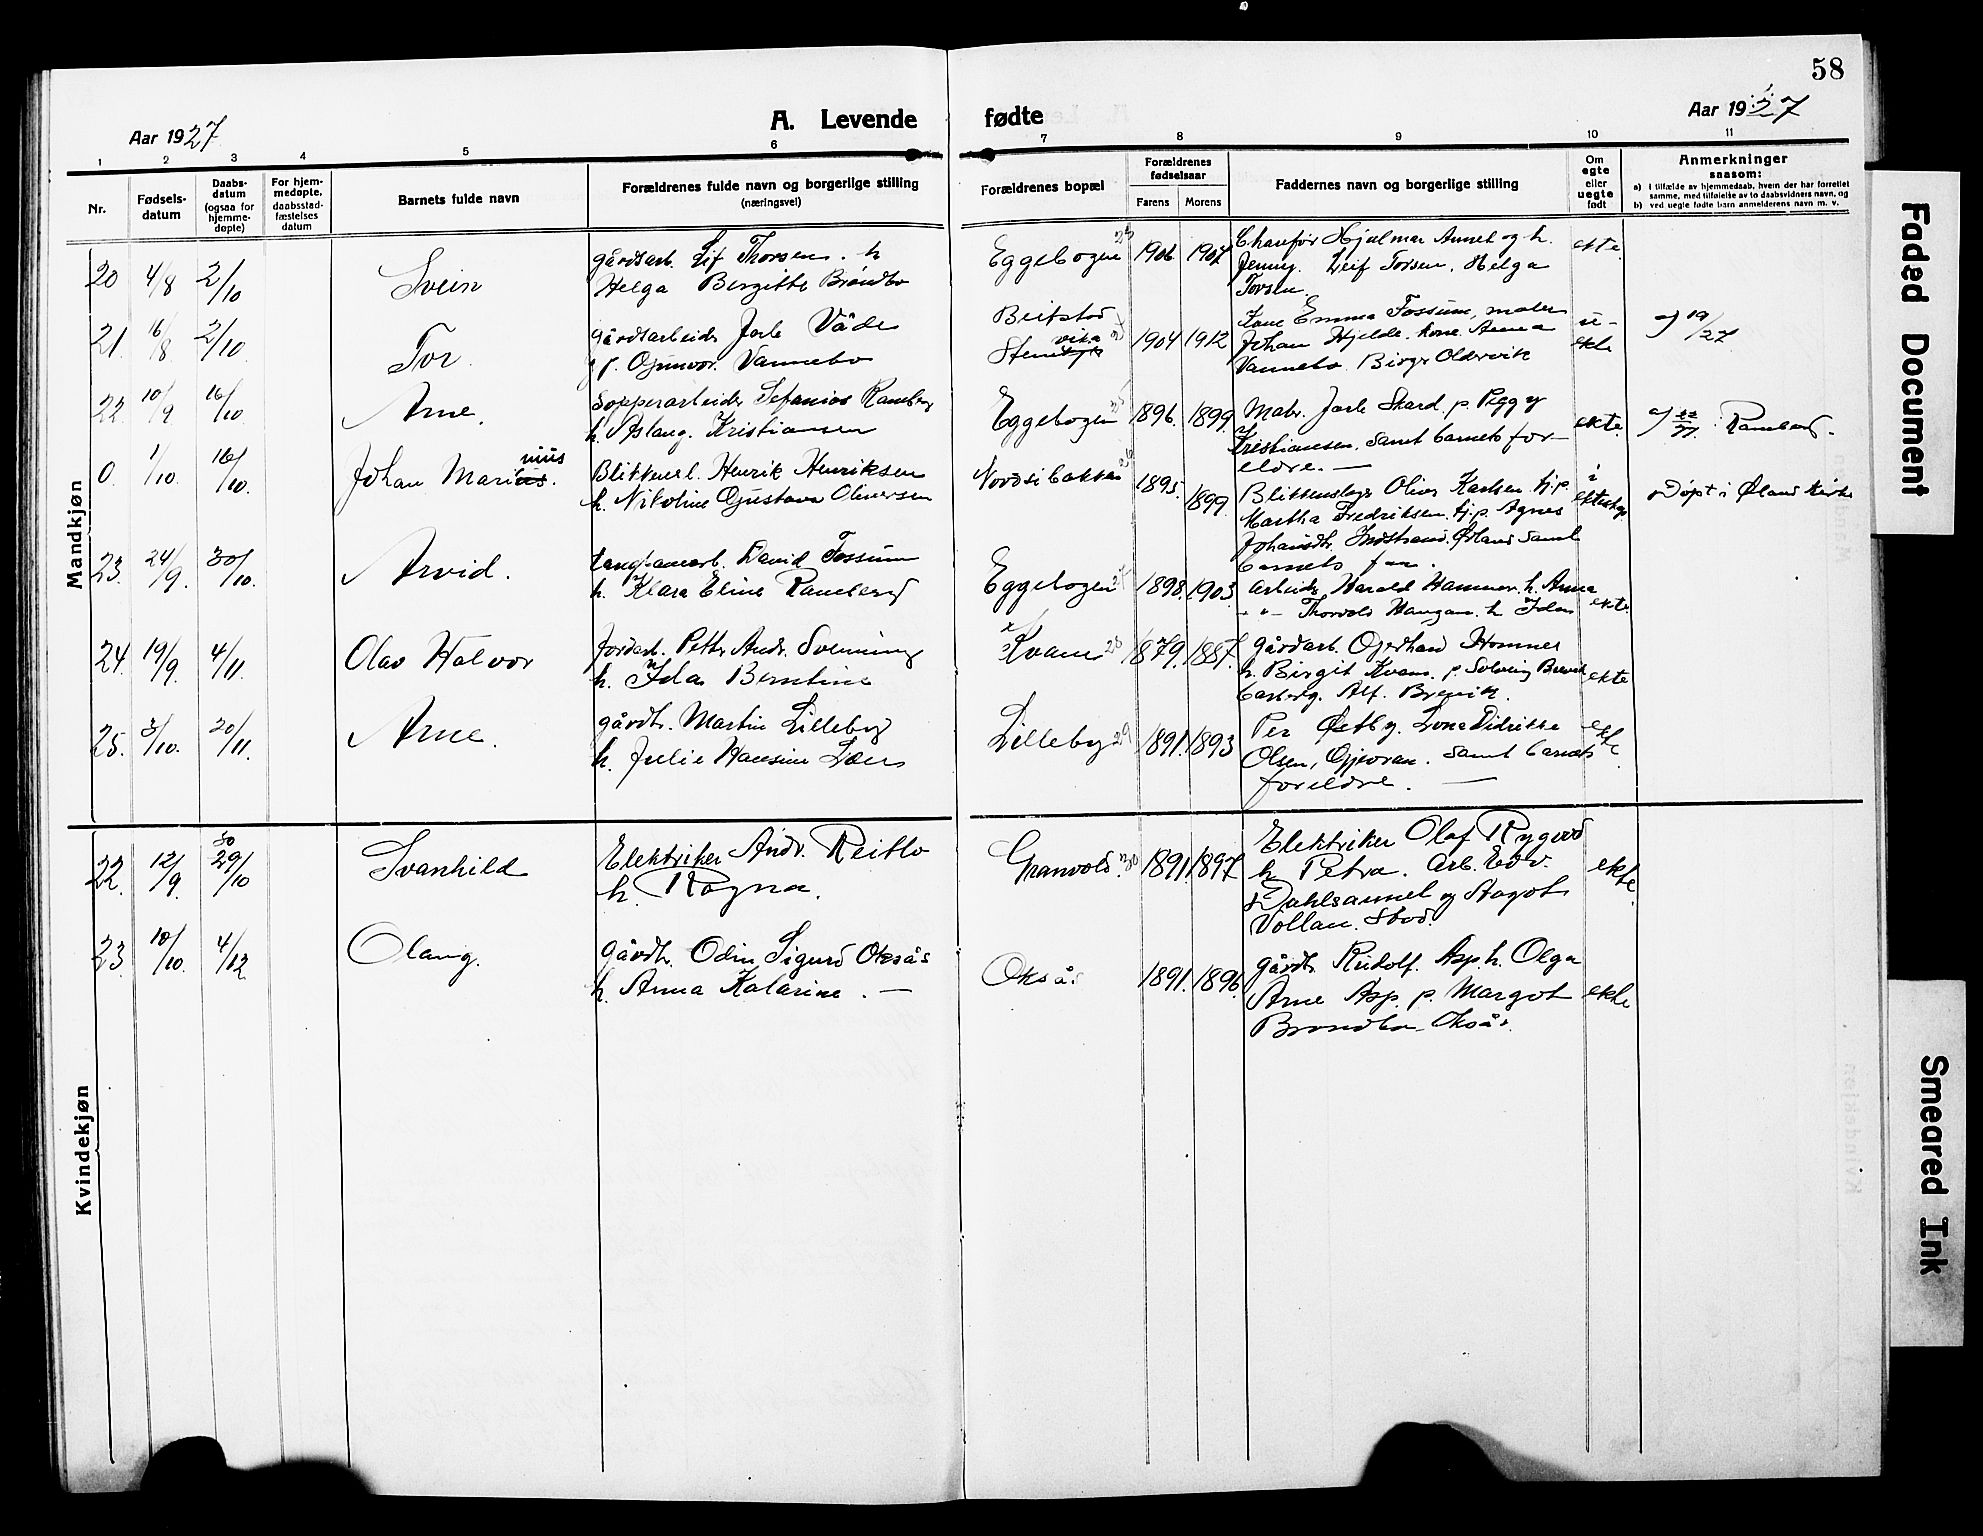 58
Aar 1927
A. Levende fødte
Aar 1927
1 2 3 4 5 6 7 8 9 10 11
Nr.
Fødsels-
datum
Daabs-
datum
(ogsaa for
hjemme-
døpte)
For hjem-
medøpte.
daabsstad-
fæstelses
datum
Barnets fulde navn
Forældrenes fulde navn og borgerlige stilling
(næringsvei)
Forældrenes bopæl
Forældrenes
fødselsaar
Farens Morens
Faddernes navn og borgerlige stilling
Om
egte
eller
uegte
født
Anmerkninger
saasom:
a) i tilfælde av hjemmedaab, hvem der har forrettet
samme, med tilføielse av to daabsvidners navn, og
b) ved uegte fødte barn anmelderens navn m. v.
Mandkjøn
20 4/8 2/10 Svein
gårdsarb. Lif Thorsen. h
Helga Bergitte Brøndbo
Eggebogen 23 1906 1907
Chaufør Hjalmar Annet og h.
Jenny. Leif Torsen. Helga
Torsen
ekte
21. 16/8 2/10 Tor
gårdsarbeider Jarle Våde
p. Gunvor. Vannebo
Beitstad
Stenvika 1904 1912
Kone Emma Fossum, maler
Johan Hjelde. kone Anna
Vannebo. Birger Oldervik
u-
ekte
19/27
22 10/9 16/10 Arne.
Sopperarbeider Stefanias Ramberg
h. Aslaug. Kristiansen
Eggebogen 1896. 1899
Maler. Jarle Skard. p. Peggy
Kristiansen. Samt barnets for-
eldre. —
ekte
Ramberg.
0. 1/10. 16/10. Johan Marinius.
Blikkensl. Henrik Henriksen
h. Nikoline Gustava Oliversen
Nordsibakken 26 1895. 1899
Blikkenslager Oliver Karlsen tj.p.
Martha Fredriksen. tj.p. Agnes
Johansdtr. Indstrand. Ørland Samt
barnets far.
i
ektesk.
Døpt i Ørland Kirke
23. 24/9. 30/10. Arvid.
David Fossum
h. Klara Eline Ramberg
Eggebogen 27 1898. 1903.
Arbeider Harald Hammer. h. Anna
- " - Thorvald Haugan. h
ekte
24. 19/9. 4/11. Olav Halvor
Jordarb. Petter Andr. Svenning
h. Ida Berntine
Kvam 28 1879. 1887.
gårdarb. Gerhard Hammer
h. Birgit Kvam. p. Solveig Brevik
Alf. Brevik.
ekte
25. 3/10. 20/11. Arne.
gårdbr. Martin Lilleby
h. Julie Hansine
Lilleby 29 1891. 1893
Per Østby. Lona Didrikke
Olsen, Gjevran. Samt barnets
foreldre. —
ekte
Kvindekjøn
22. 12/9. 30 29/10 Svanhild
Elektriker Andr. Reitlo
h. Ragna.
Granvold. 30 1891. 1897
Elektriker Olaf Rygvold
h. Petra. Arb. Edv.
Dahlsaunet og Magot
Vollan. Stod.
ekte
23. 10/10. 4/12 Olaug.
gårdbr. Odin Sigurd Oksås
h. Anna Katarine. —
Oksås 1891. 1896.
gårdbr Rudolf. Asp. h. Olga
Arne Asp. p. Margot
Brøndbo. Oksås.
ekte
Faded Document
Smeared Ink